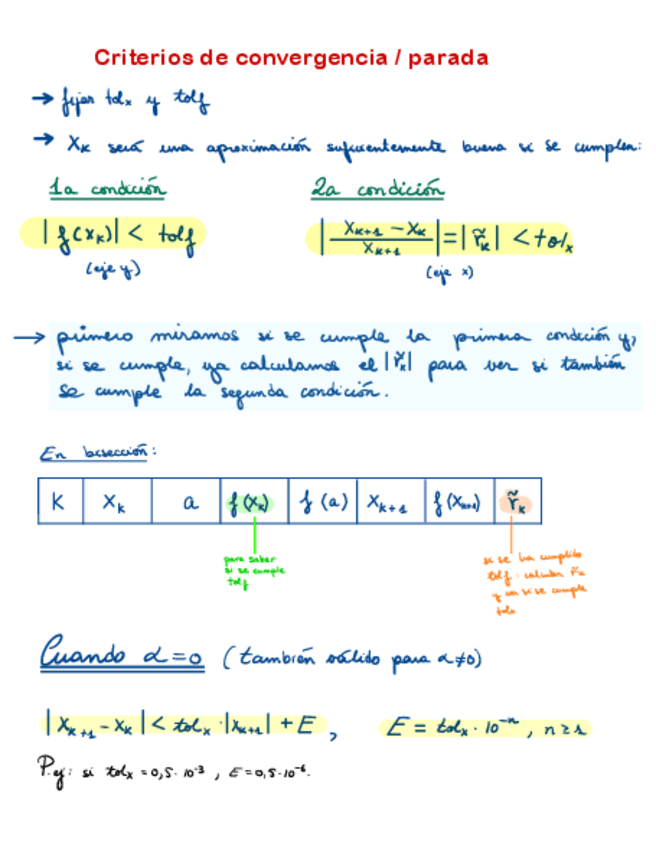 Criterios de convergencia / parada
→ fijar tolₓ y tolf
→ Xₖ será una aproximación suficientemente buena si se cumplen:
1a condición 2a condición
|f(xₖ)| < tolf |(Xₖ₊₁ - Xₖ)/Xₖ₊₁| = |r̃ₖ| < tolₓ
(eje y) (eje x)
→ primero miramos si se cumple la primera condición y,
si se cumple, ya calculamos el |r̃ₖ| para ver si también
se cumple la segunda condición.
En bisección:
K Xₖ a f(Xₖ) f(a) Xₖ₊₁ f(Xₖ₊₁) r̃ₖ
para saber
si se cumple
tolf
si se ha cumplido
tolf: calcular r̃ₖ
y ver si se cumple
tolx
Cuando α=0 (también válido para α≠0)
|Xₖ₊₁ - Xₖ| < tolₓ · |Xₖ₊₁| + E, E = tolₓ · 10⁻ⁿ, n≥1
P.ej: si tolₓ = 0,5·10⁻³, E=0,5·10⁻⁶.